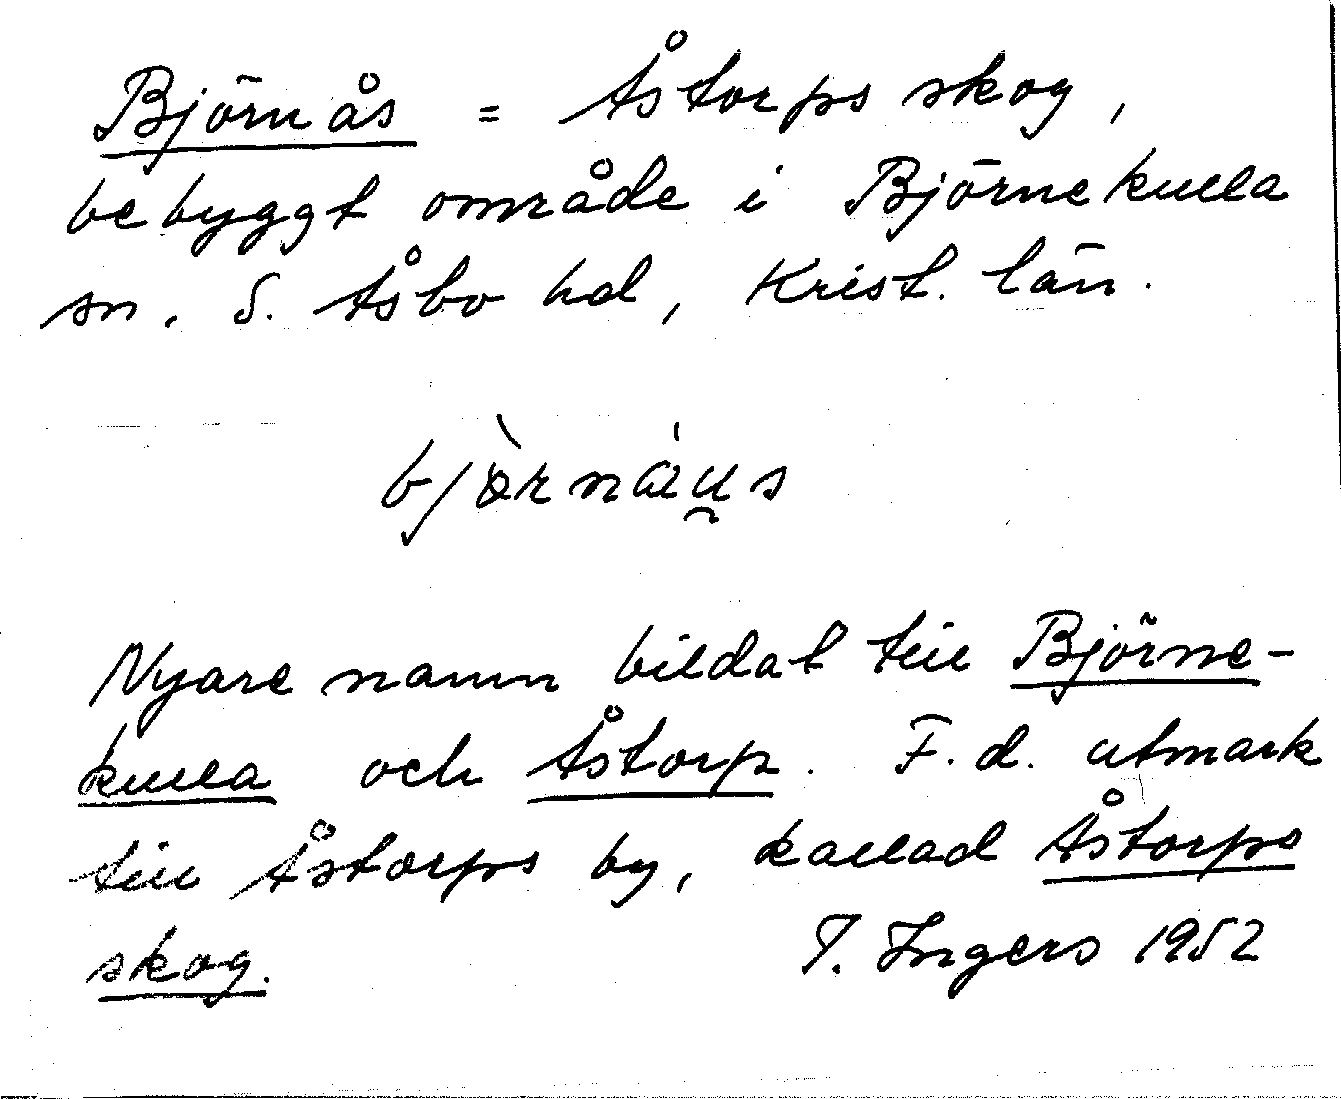 Björnås = Åstorps skog,
bebyggt område i Björnekulla
sn. S. Åsbo hd, Krist. län.
bjö̀rnáu̯s
Nyare namn bildat till Björne-
kulla och Åstorp. F.d. utmark
till Åstorps by, kallad Åstorps
skog. I. Ingers 1952